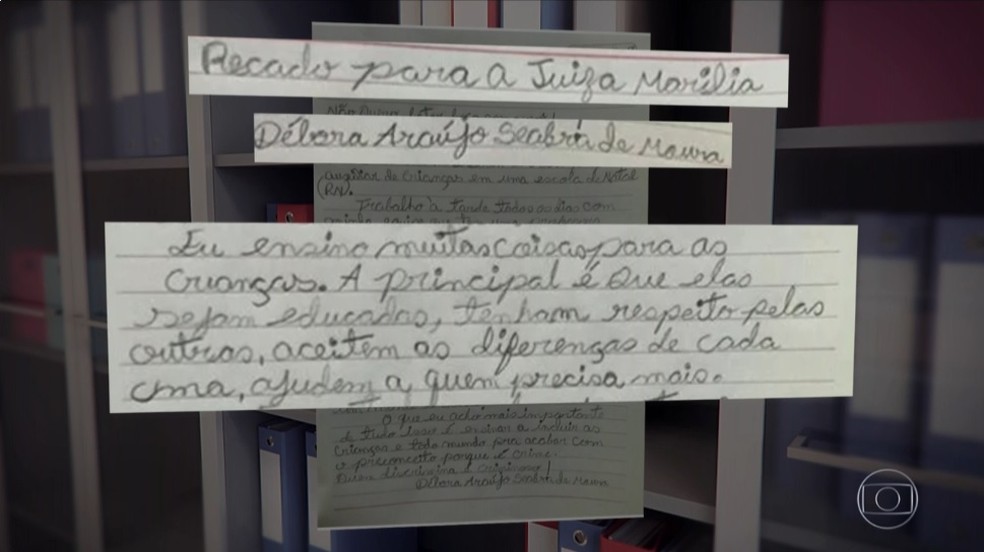 Recado para a Juiza Marília
Débora Araújo Seabra de Moura
auxiliar de crianças em uma escola de Natal
(RN).
Trabalho à tarde todos os dias com
Eu ensino muitas coisas para as
crianças. A principal é que elas
sejam educadas, tenham respeito pelas
outras, aceitem as diferenças de cada
uma, ajudem a quem precisa mais.
O que eu acho mais importante
de tudo isso é ensinar a incluir as
crianças e todo mundo para acabar com
o preconceito porque é crime.
Quem discrimina é criminoso!
Débora Araújo Seabra de Moura